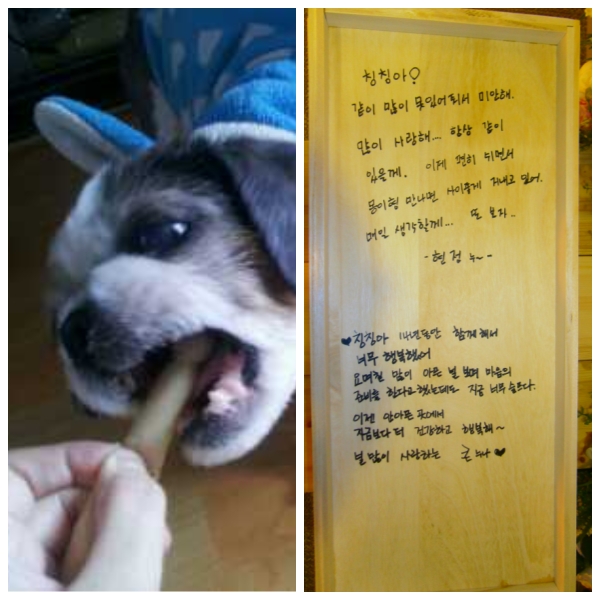 칭칭아♡
같이 많이 못있어줘서 미안해.
많이 사랑해.... 항상 같이
있을께. 이제 편히 쉬면서
몽이형 만나면 사이좋게 지내고 있어.
매일 생각할께... 또 보자..
-현정 누~-
♥칭칭아 14년동안 함께해서
너무 행복했어
요며칠 많이 아픈 널 보며 마음의
준비를 한다고 했는데도 지금 너무 슬프다.
이젠 안아픈 곳에서
지금보다 더 건강하고 행복해~
널 많이 사랑하는 큰누나♥